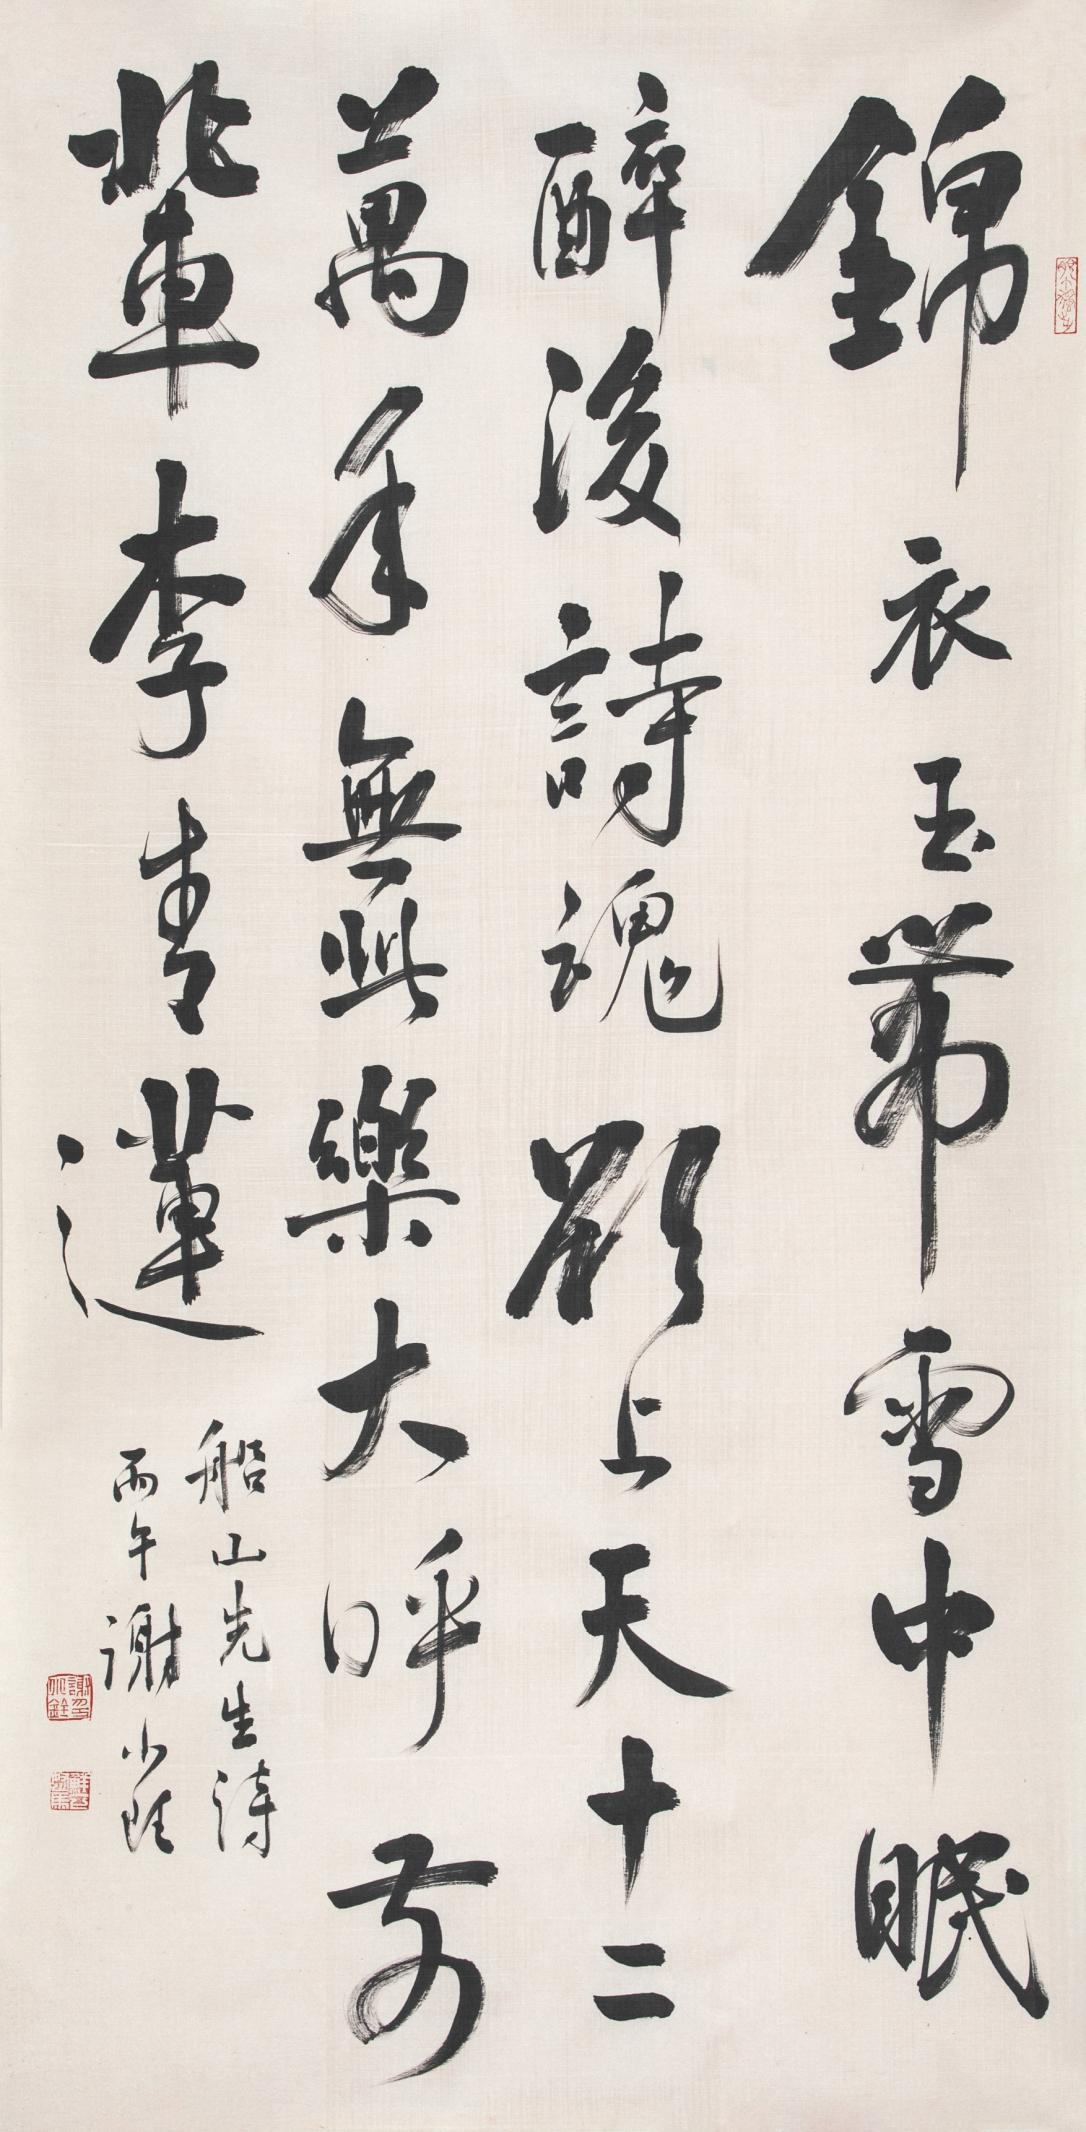 錦衣玉帶雪中眠
醉後詩魂欲上天十二
萬年無此樂大呼前
輩李青蓮
船山先生詩
丙午謝小銓